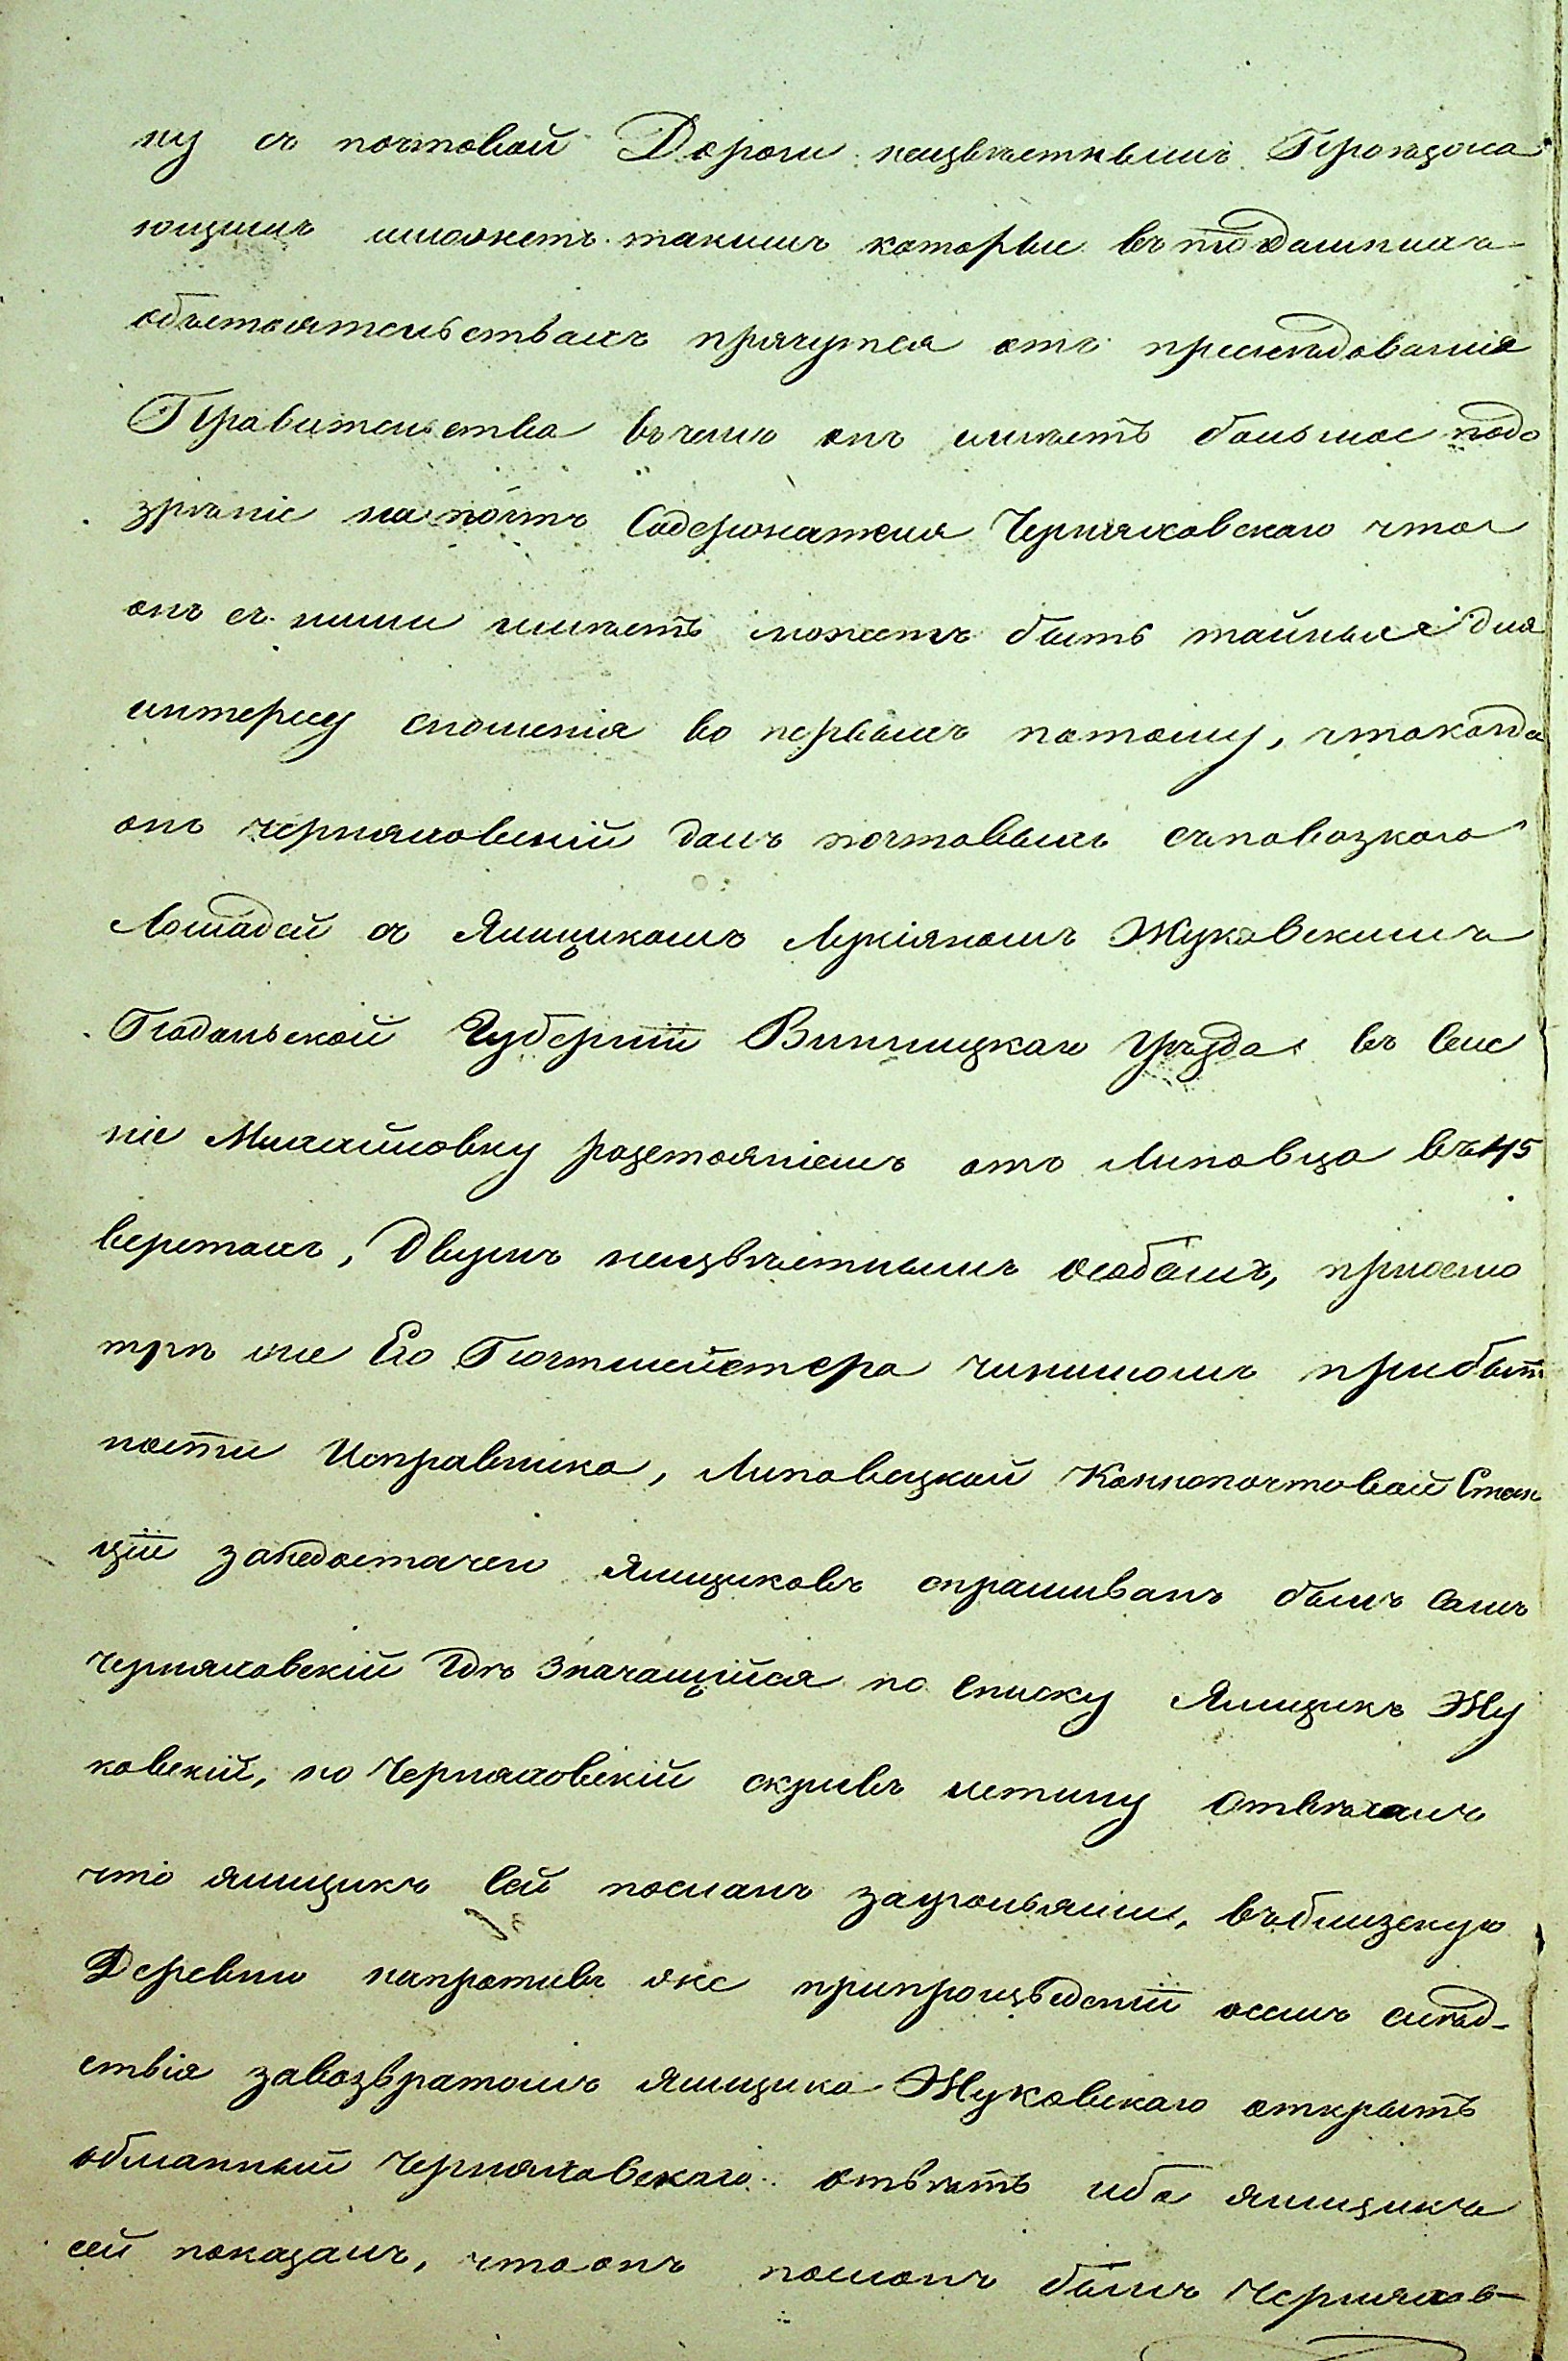 ну съ почтовой Дороги неизвѣстнымъ Проѣзжа
ющимъ иможетъ такимъ которые въ тогдашнихъ
обстоятельствахъ прячутся отъ преслѣдованія
Правительства въчемъ онъ имѣетъ большое подо
зрѣніе на почтъ Содержателя Черняховскаго что
онъ съ ними имѣетъ можетъ быть тайныя для
интересу сношенія во первыхъ потому, чтокогда
онъ черняховскій далъ почтовыхъ съповозкою
Лошадей съ Ямщикомъ Лукіяномъ Жуковскимъ
Подольской Губерніи Винницкаго уѣзда въ Селе
ніе Михайловку разстояніемъ отъ Липовца въ 45
верстахъ, Двумъ неизвѣстнымъ особамъ, приосмо
трѣ же Его Почтмейстера чинимомъ прибыт
ности Исправника, Липовецкой Коннопочтовой Стан
ціи занедостачею Ямщиковъ спрашиванъ былъ Самъ
черняховскій Гдѣ Значащійся по Списку Ямщикъ Жу
ковскій, но Черняховскій скрывъ истину Отвѣчалъ
что ямщикъ Сей посланъ заугольями, въблизскую
Деревню напротивъ же припроизведеніи осемъ слѣд-
ствія завозвратомъ Ямщика Жуковскаго открытъ
обманный Черняховскаго отвѣтъ ибо ямщикъ
сей показалъ, чтоонъ посланъ былъ Черняхов-